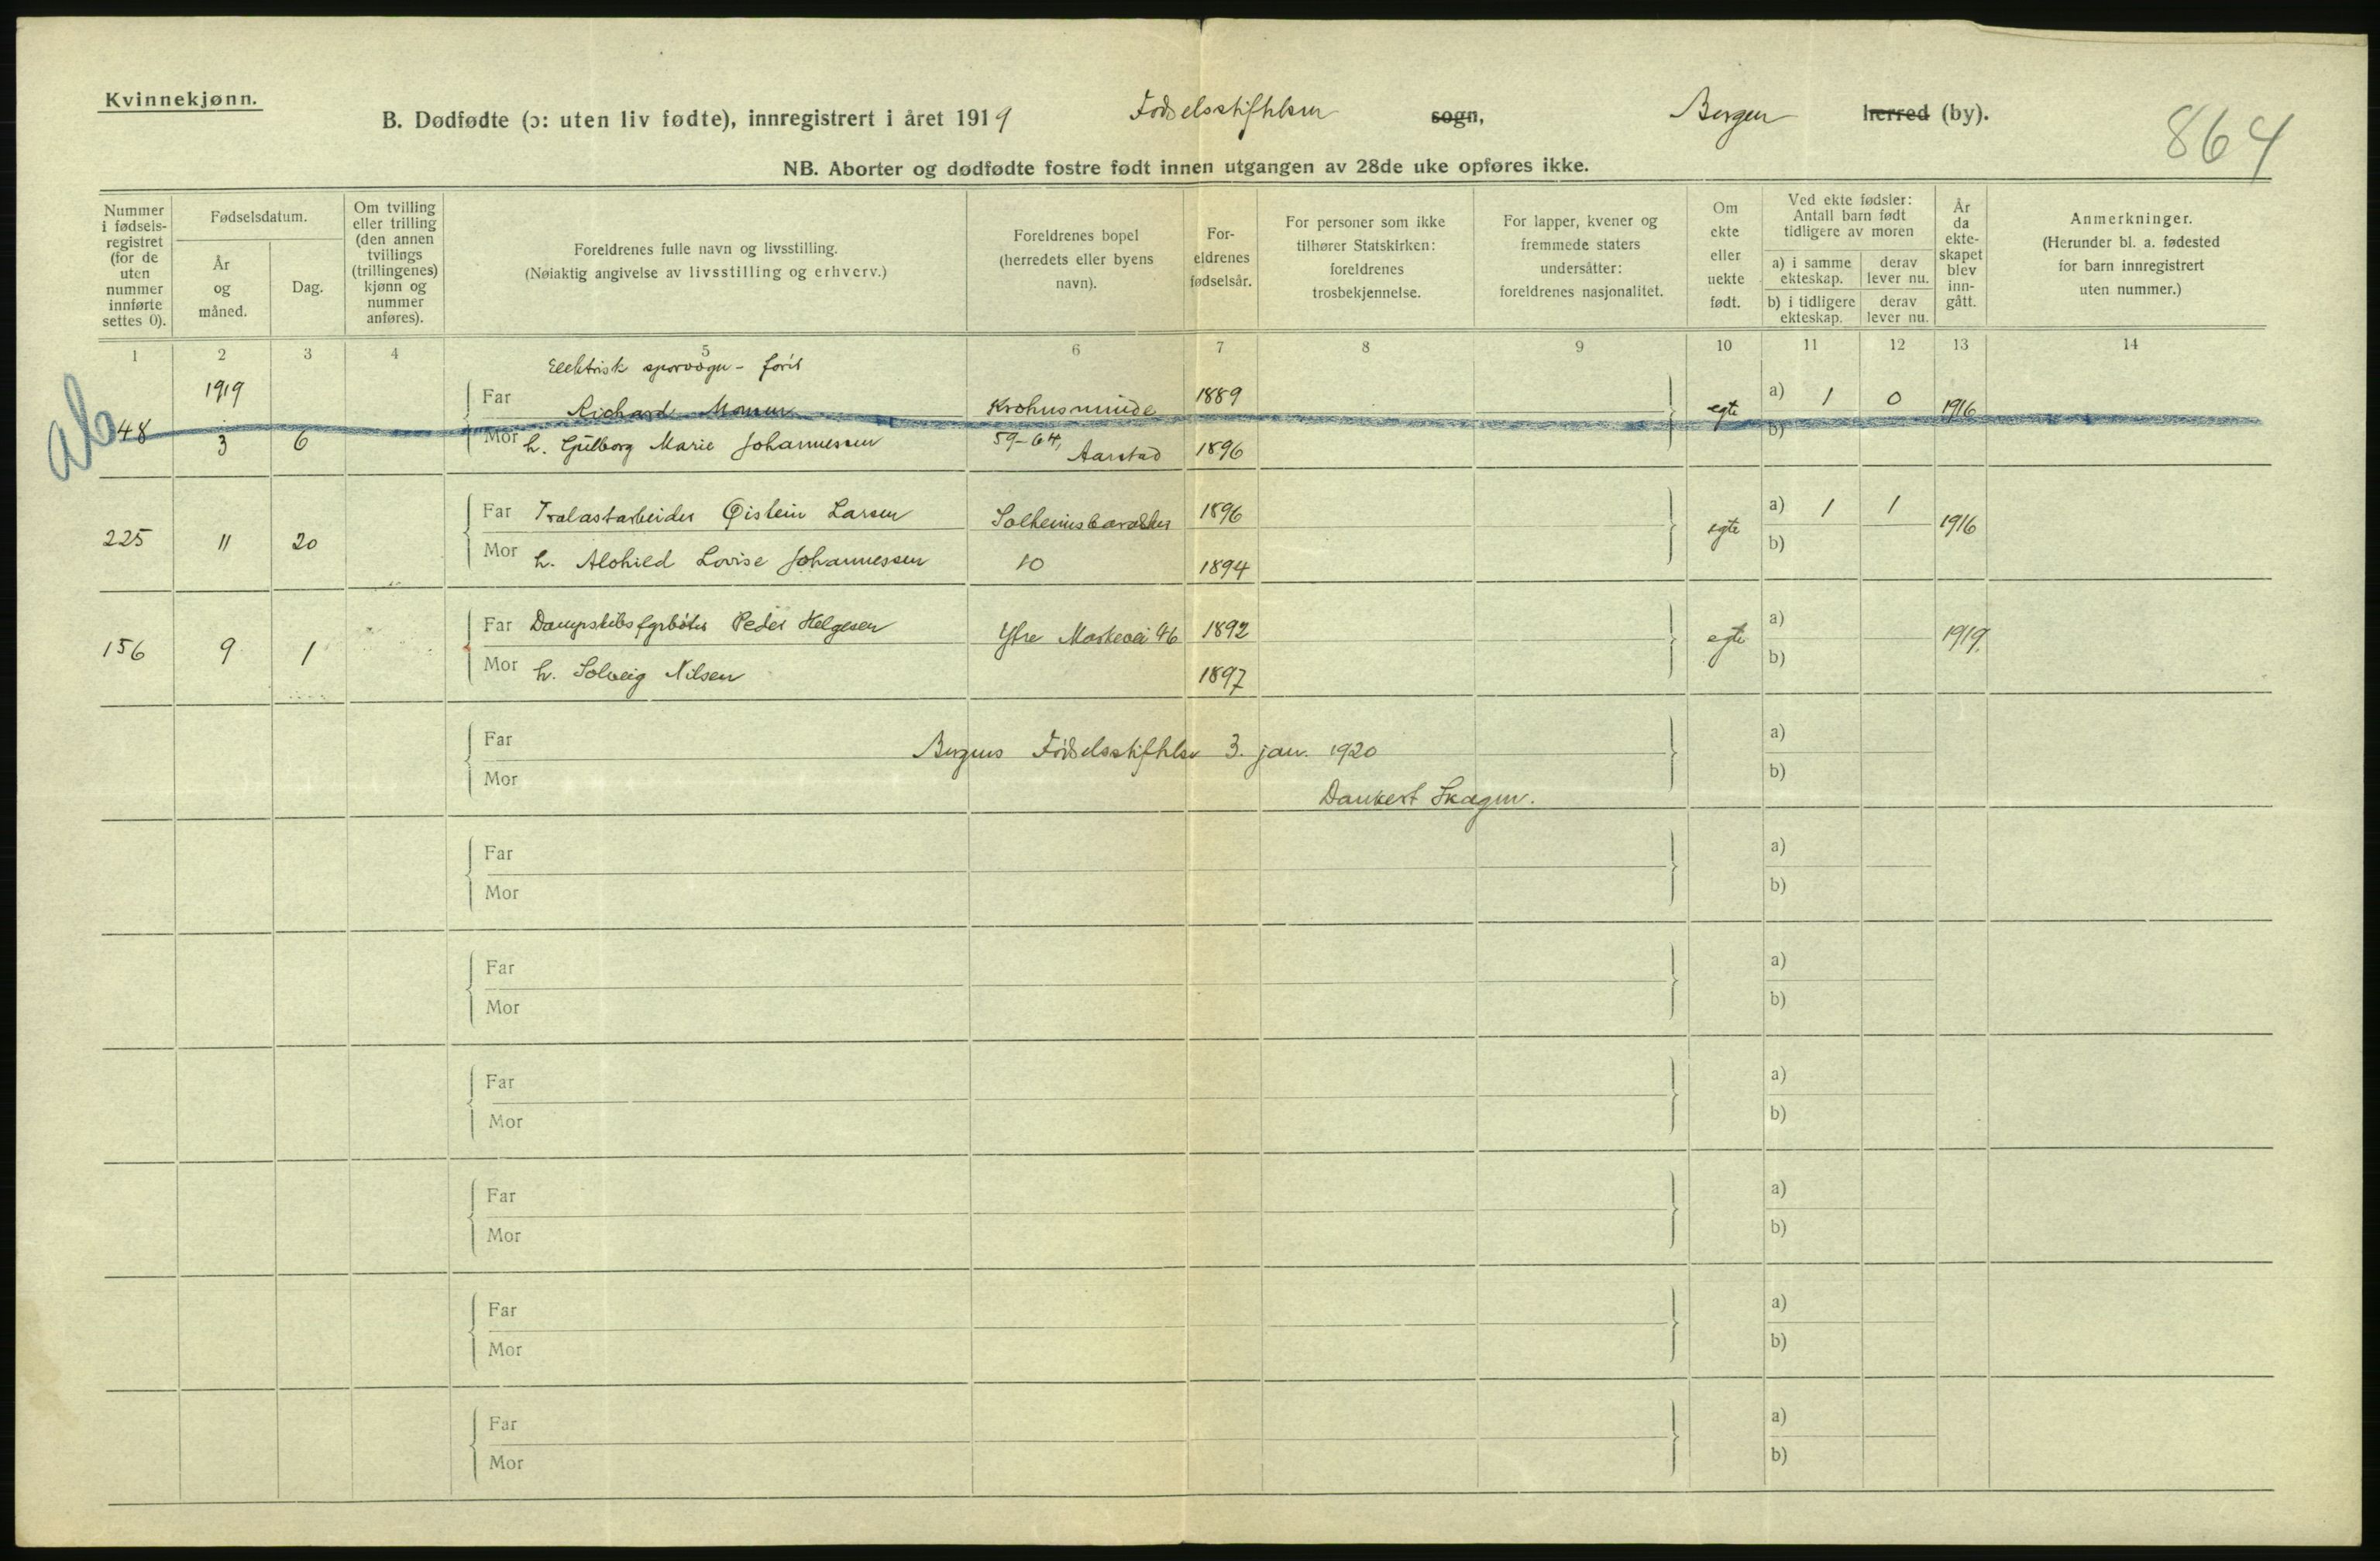 Kvinnekjønn.
B. Dødfødte (ɔ: uten liv fødte), innregistrert i året 1919 Fødselsstiftelsen sogn, Bergen herred (by).
864
NB. Aborter og dødfødte fostre født innen utgangen av 28de uke opføres ikke.
Nummer i fødsels-registret (for de uten nummer innførte settes 0).
Fødselsdatum.
År og måned.
Dag.
Om tvilling eller trilling (den annen tvillings (trillingenes) kjønn og nummer anføres).
Foreldrenes fulle navn og livsstilling.
(Nøiaktig angivelse av livsstilling og erhverv.)
Foreldrenes bopel (herredets eller byens navn).
For-eldrenes fødselsår.
For personer som ikke tilhører Statskirken: foreldrenes trosbekjennelse.
For lapper, kvener og fremmede staters undersåtter: foreldrenes nasjonalitet.
Om ekte eller uekte født.
Ved ekte fødsler: Antall barn født tidligere av moren
a) i samme ekteskap. derav lever nu.
b) i tidligere ekteskap. derav lever nu.
År da ekte-skapet blev inn-gått.
Anmerkninger.
(Herunder bl. a. fødested for barn innregistrert uten nummer.)
1 2 3 4 5 6 7 8 9 10 11 12 13 14
Elektrisk sporvogn-
1919 Far Richard 1889 a) 1 0
ab 48 3 6 Mor h. Gulborg Marie Johannessen 59-64, Aarstad 1896 egte b) 1916
Far Trelastarbeider Øistein Larsen Solheimsbarakker 1896 a) 1 1
225 11 20 Mor h. Alvhild Lovise Johannessen 10 1894 egte b) 1916
Far Dampskibsfyrbøter Peder Helgesen Ytre Markevei 46 1892 a)
156 9 1 Mor h. Solveig Nilsen 1897 egte b) 1919.
Far Bergens Fødselsstiftelse 3. jan. 1920 a)
Mor Dankert Skagen. b)
Far a)
Mor b)
Far a)
Mor b)
Far a)
Mor b)
Far a)
Mor b)
Far a)
Mor b)
Far a)
Mor b)